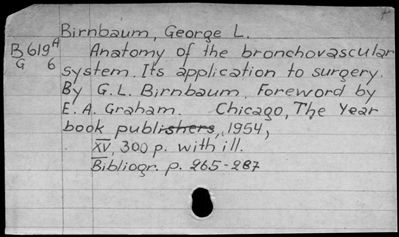 Birnbaum, George L.
B619A Anatomy of the bronchovascular
G 6 system. Its application to surgery.
By G. L. Birnbaum. Foreword by
E. A. Graham. Chicago, The Year
book publishers, 1954,
XV, 300 p. with ill.
Bibliogr. p. 265-287